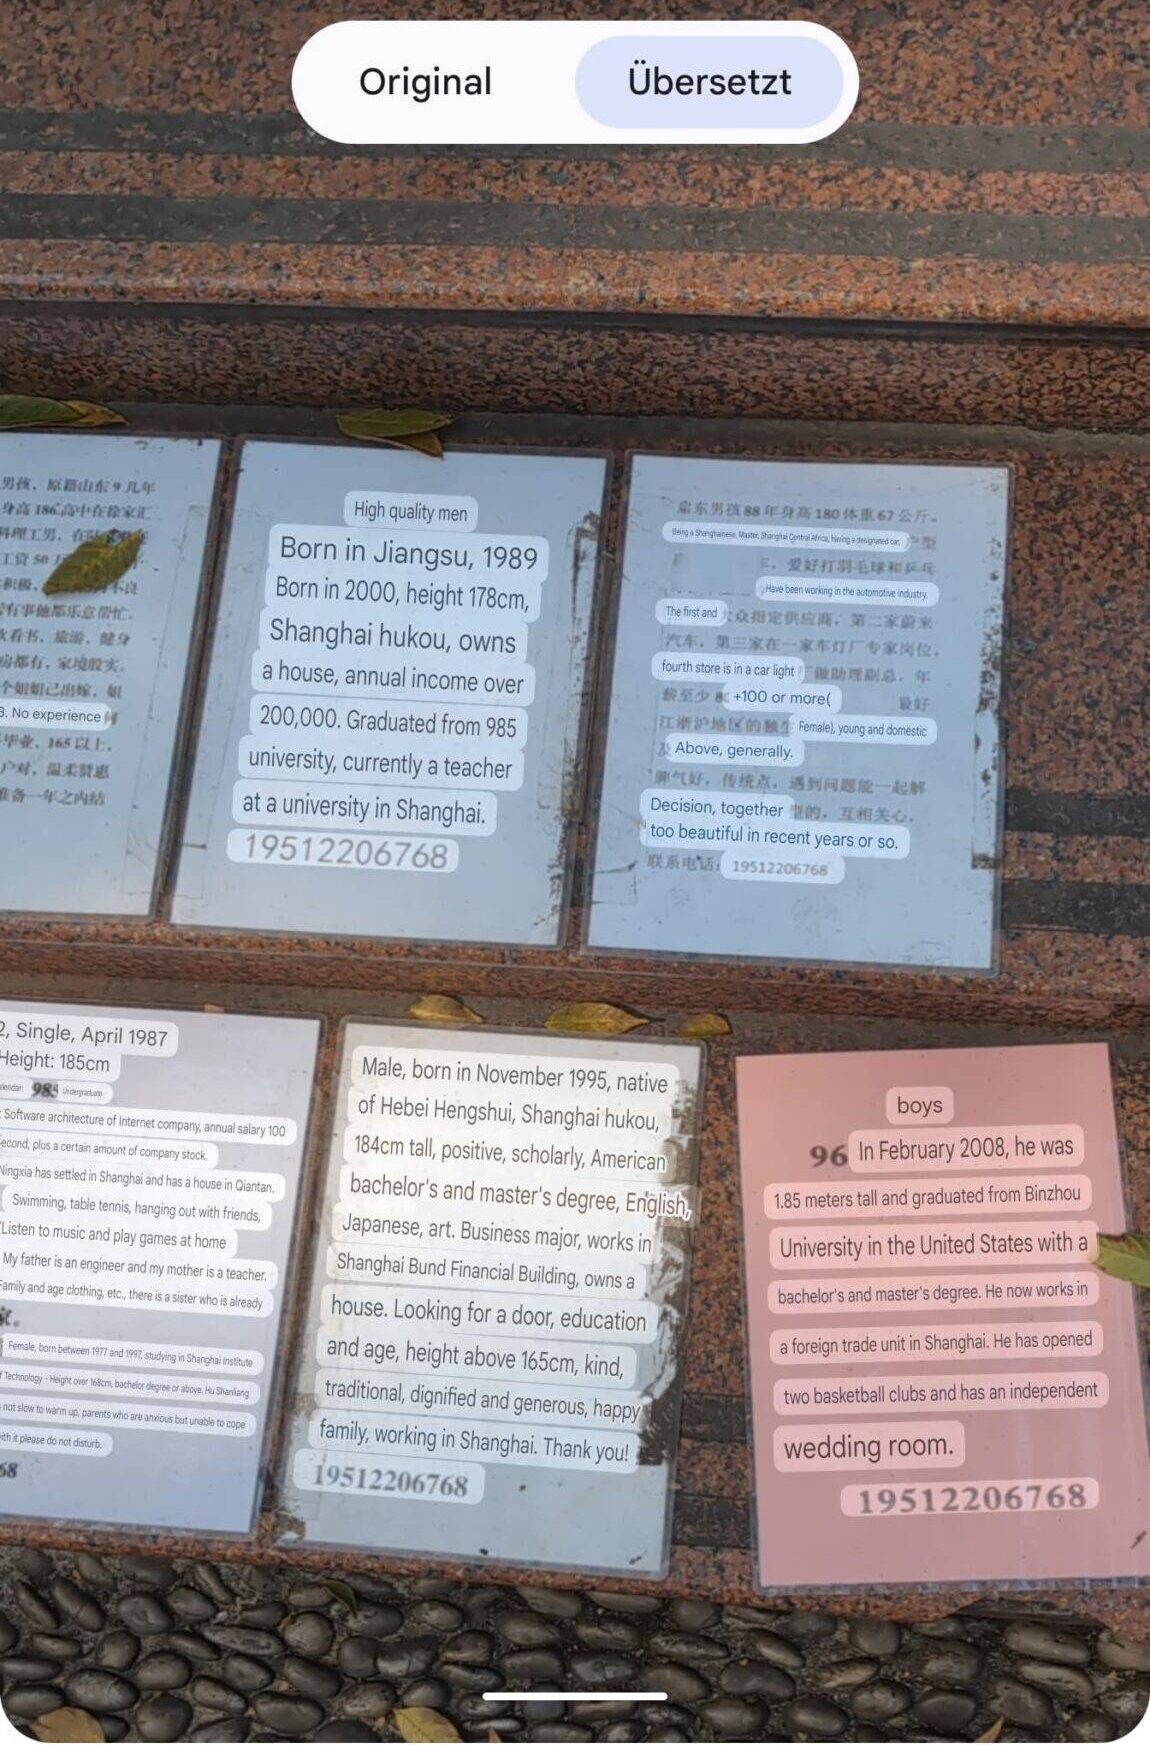 Original
Übersetzt
男孩、原籍山东9几年
身高186高中在徐家汇
科理工男,在
工资50
积极、
有事他都乐意帮忙.
欢看书、旅游、健身
房都有,家境殷实.
个姐姐已出嫁,姐
3. No experience
毕业、165以上,
户对,温柔贤惠
准备一年之内结
High quality men
Born in Jiangsu, 1989
Born in 2000, height 178cm,
Shanghai hukou, owns
a house, annual income over
200,000. Graduated from 985
university, currently a teacher
at a university in Shanghai.
19512206768
启东男孩88年身高180体重67公斤。
Being a Shanghainese, Master, Shanghai Central Africa, having a designated car, 户型
爱好打羽毛球和乒乓
Have been working in the automotive industry.
The first and 众指定供应商,第二家蔚来
汽车,第三家在一家车灯厂专家岗位,
fourth store is in a car light 做助理副总,年
薪至少 +100 or more( 最好
江浙沪地区的独生 Female), young and domestic
Above, generally.
脾气好,传统点,遇到问题能一起解
Decision, together 型的,互相关心,
too beautiful in recent years or so.
联系电话: 19512206768
2, Single, April 1987
Height: 185cm
alendar: 985 Undergraduate
: Software architecture of Internet company, annual salary 100
econd, plus a certain amount of company stock.
Ningxia has settled in Shanghai and has a house in Qiantan.
Swimming, table tennis, hanging out with friends,
Listen to music and play games at home
My father is an engineer and my mother is a teacher.
Family and age clothing, etc., there is a sister who is already
家。
Female, born between 1977 and 1997, studying in Shanghai Institute
f Technology - Height over 168cm, bachelor degree or above. Hu Shanliang
not slow to warm up, parents who are anxious but unable to cope
ith it please do not disturb.
68
Male, born in November 1995, native
of Hebei Hengshui, Shanghai hukou,
184cm tall, positive, scholarly, American
bachelor's and master's degree, English,
Japanese, art. Business major, works in
Shanghai Bund Financial Building, owns a
house. Looking for a door, education
and age, height above 165cm, kind,
traditional, dignified and generous, happy
family, working in Shanghai. Thank you!
19512206768
boys
96 In February 2008, he was
1.85 meters tall and graduated from Binzhou
University in the United States with a
bachelor's and master's degree. He now works in
a foreign trade unit in Shanghai. He has opened
two basketball clubs and has an independent
wedding room.
19512206768